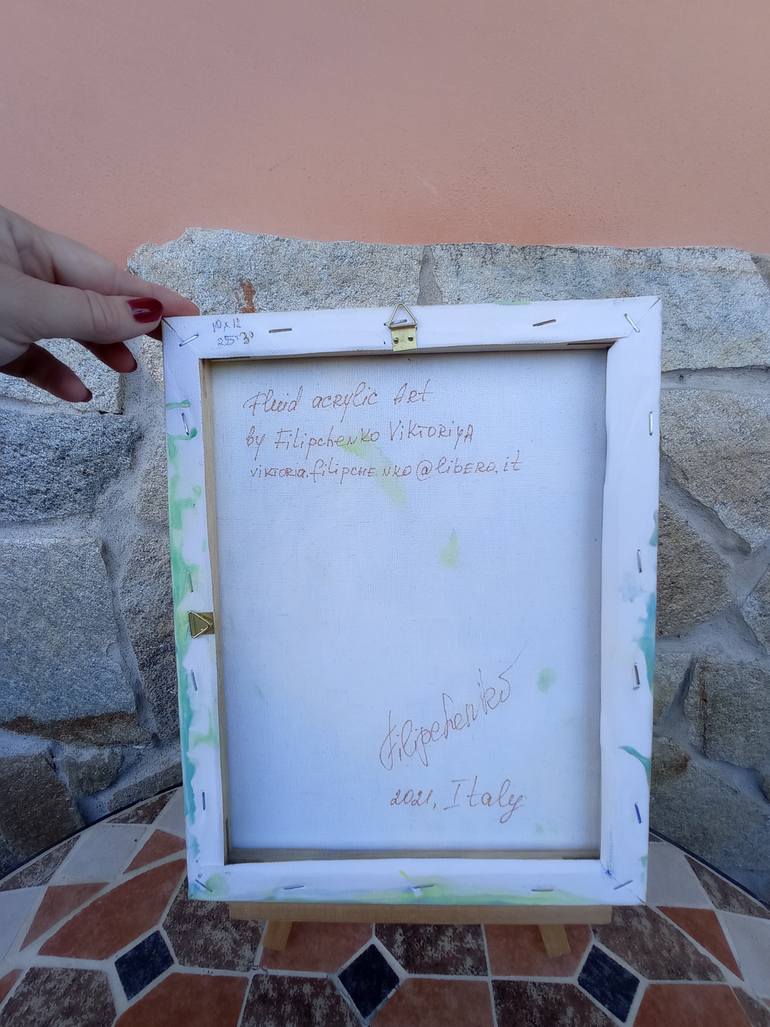 10x12
25*30
Fluid acrylic Art
by Filipchenko Viktoriya
viktoria.filipchenko@libero.it
Filipchenko
2021, Italy